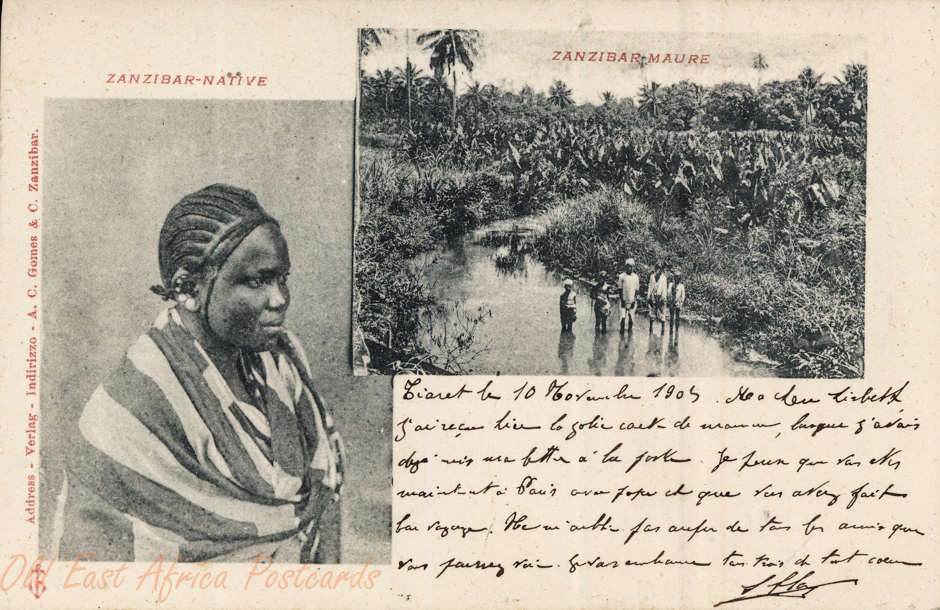 ZANZIBAR-NATIVE
ZANZIBAR-MAURE
Address - Verlag - Indirizzo - A. C. Gomes & C. Zanzibar.
Tiaret le 10 Novembre 190 Ma chère
J'ai reçu hier la jolie carte de maman, lorsque j'avais
déjà mis ma lettre à la poste. Je pense que vous êtes
maintenant à Paris avec papa et que vous avez fait
bon voyage. Ne m'oublie pas auprès de tous les amis que
vous pourrez voir. Je vous embrasse tous trois de tout coeur
Old East Africa Postcards